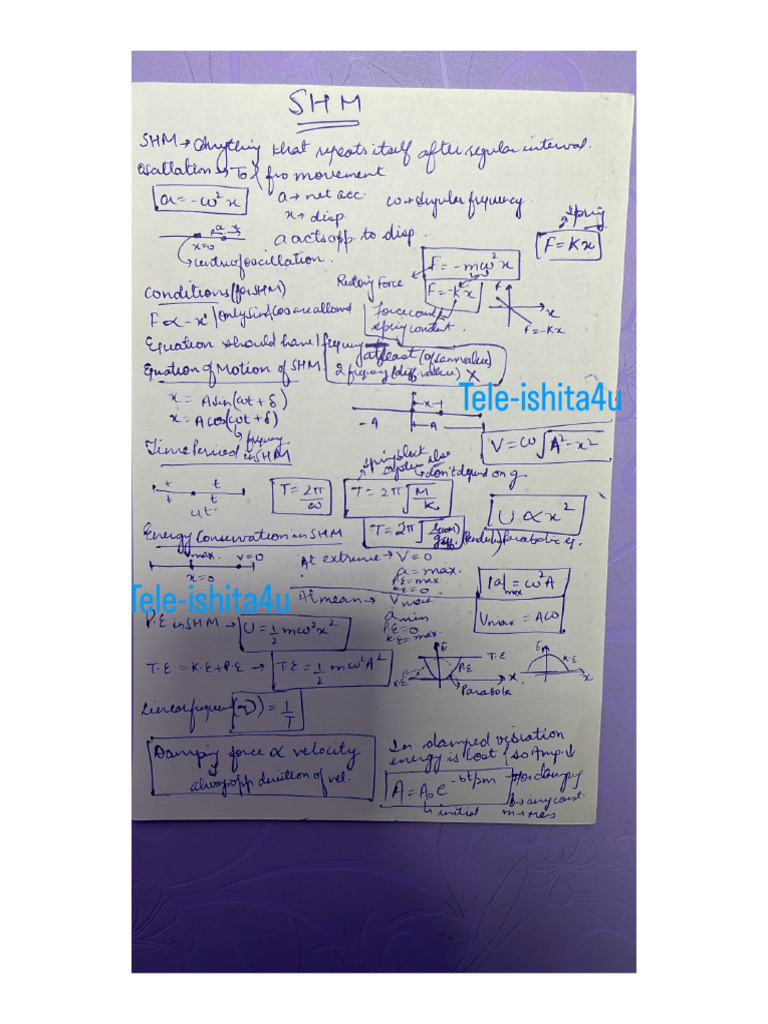 SHM
SHM → Anything that repeats itself after regular interval.
oscillation → To & fro movement
a = -ω²x
a → net acc.
x → disp
ω → Angular frequency
a acts opp. to disp.
x=0
centre of oscillation.
spring
F = Kx
Restoring Force
F = -mω²x
F = -Kx
Force const
spring constant.
F
x
F = -Kx
Conditions (for SHM)
F ∝ -x' | Only sin, cos are allowed
Equation should have 1 frequency
atleast (of same value)
2 frequency (diff value) ×
Equation of Motion of SHM
x = A sin(ωt + δ)
x = A cos(ωt + δ)
frequency
Tele-ishita4u
x
-A
A
V = ω√A² - x²
Time Period in SHM
spring block system also
don't depend on g
t
t
t
t
4t
T = 2π/ω
T = 2π√M/K
T = 2π√
(Pendulum)
U ∝ x²
Parabolic eq.
Energy Conservation in SHM
Vmax.
V=0
x=0
At extreme → V=0
a = max.
P.E = max
K.E = 0
|a|max = ω²A
Tele-ishita4u
At mean → Vmax
a min
P.E = 0
K.E = max.
Vmax = Aω
P.E in SHM → U = 1/2 mω²x²
T.E = K.E + P.E → T.E = 1/2 mω²A²
E
T.E
P.E
K.E
x
Parabola
E
K.E
x
Linear frequency (ν) = 1/T
Damping force ∝ velocity
always opp direction of vel.
In damped vibration
energy is lost (so Amp. ↓
A = A₀e^-bt/2m
for damping
b → any const.
m → mass
initial